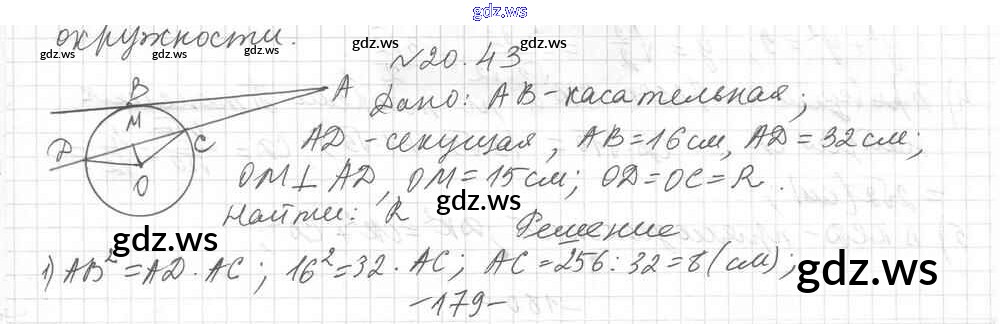 gdz.ws
окружности.
gdz.ws
gdz.ws
№20.43
B
A
M
Дано: AB - касательная;
D
C
AD - секущая, AB=16 см, AD=32 см;
O
OM⊥AD, OM=15 см; OD=OC=R.
gdz.ws
Найти: R
gdz.ws
Решение
1) AB²=AD·AC; 16²=32·AC; AC=256:32=8(см);
gdz.ws
-179-